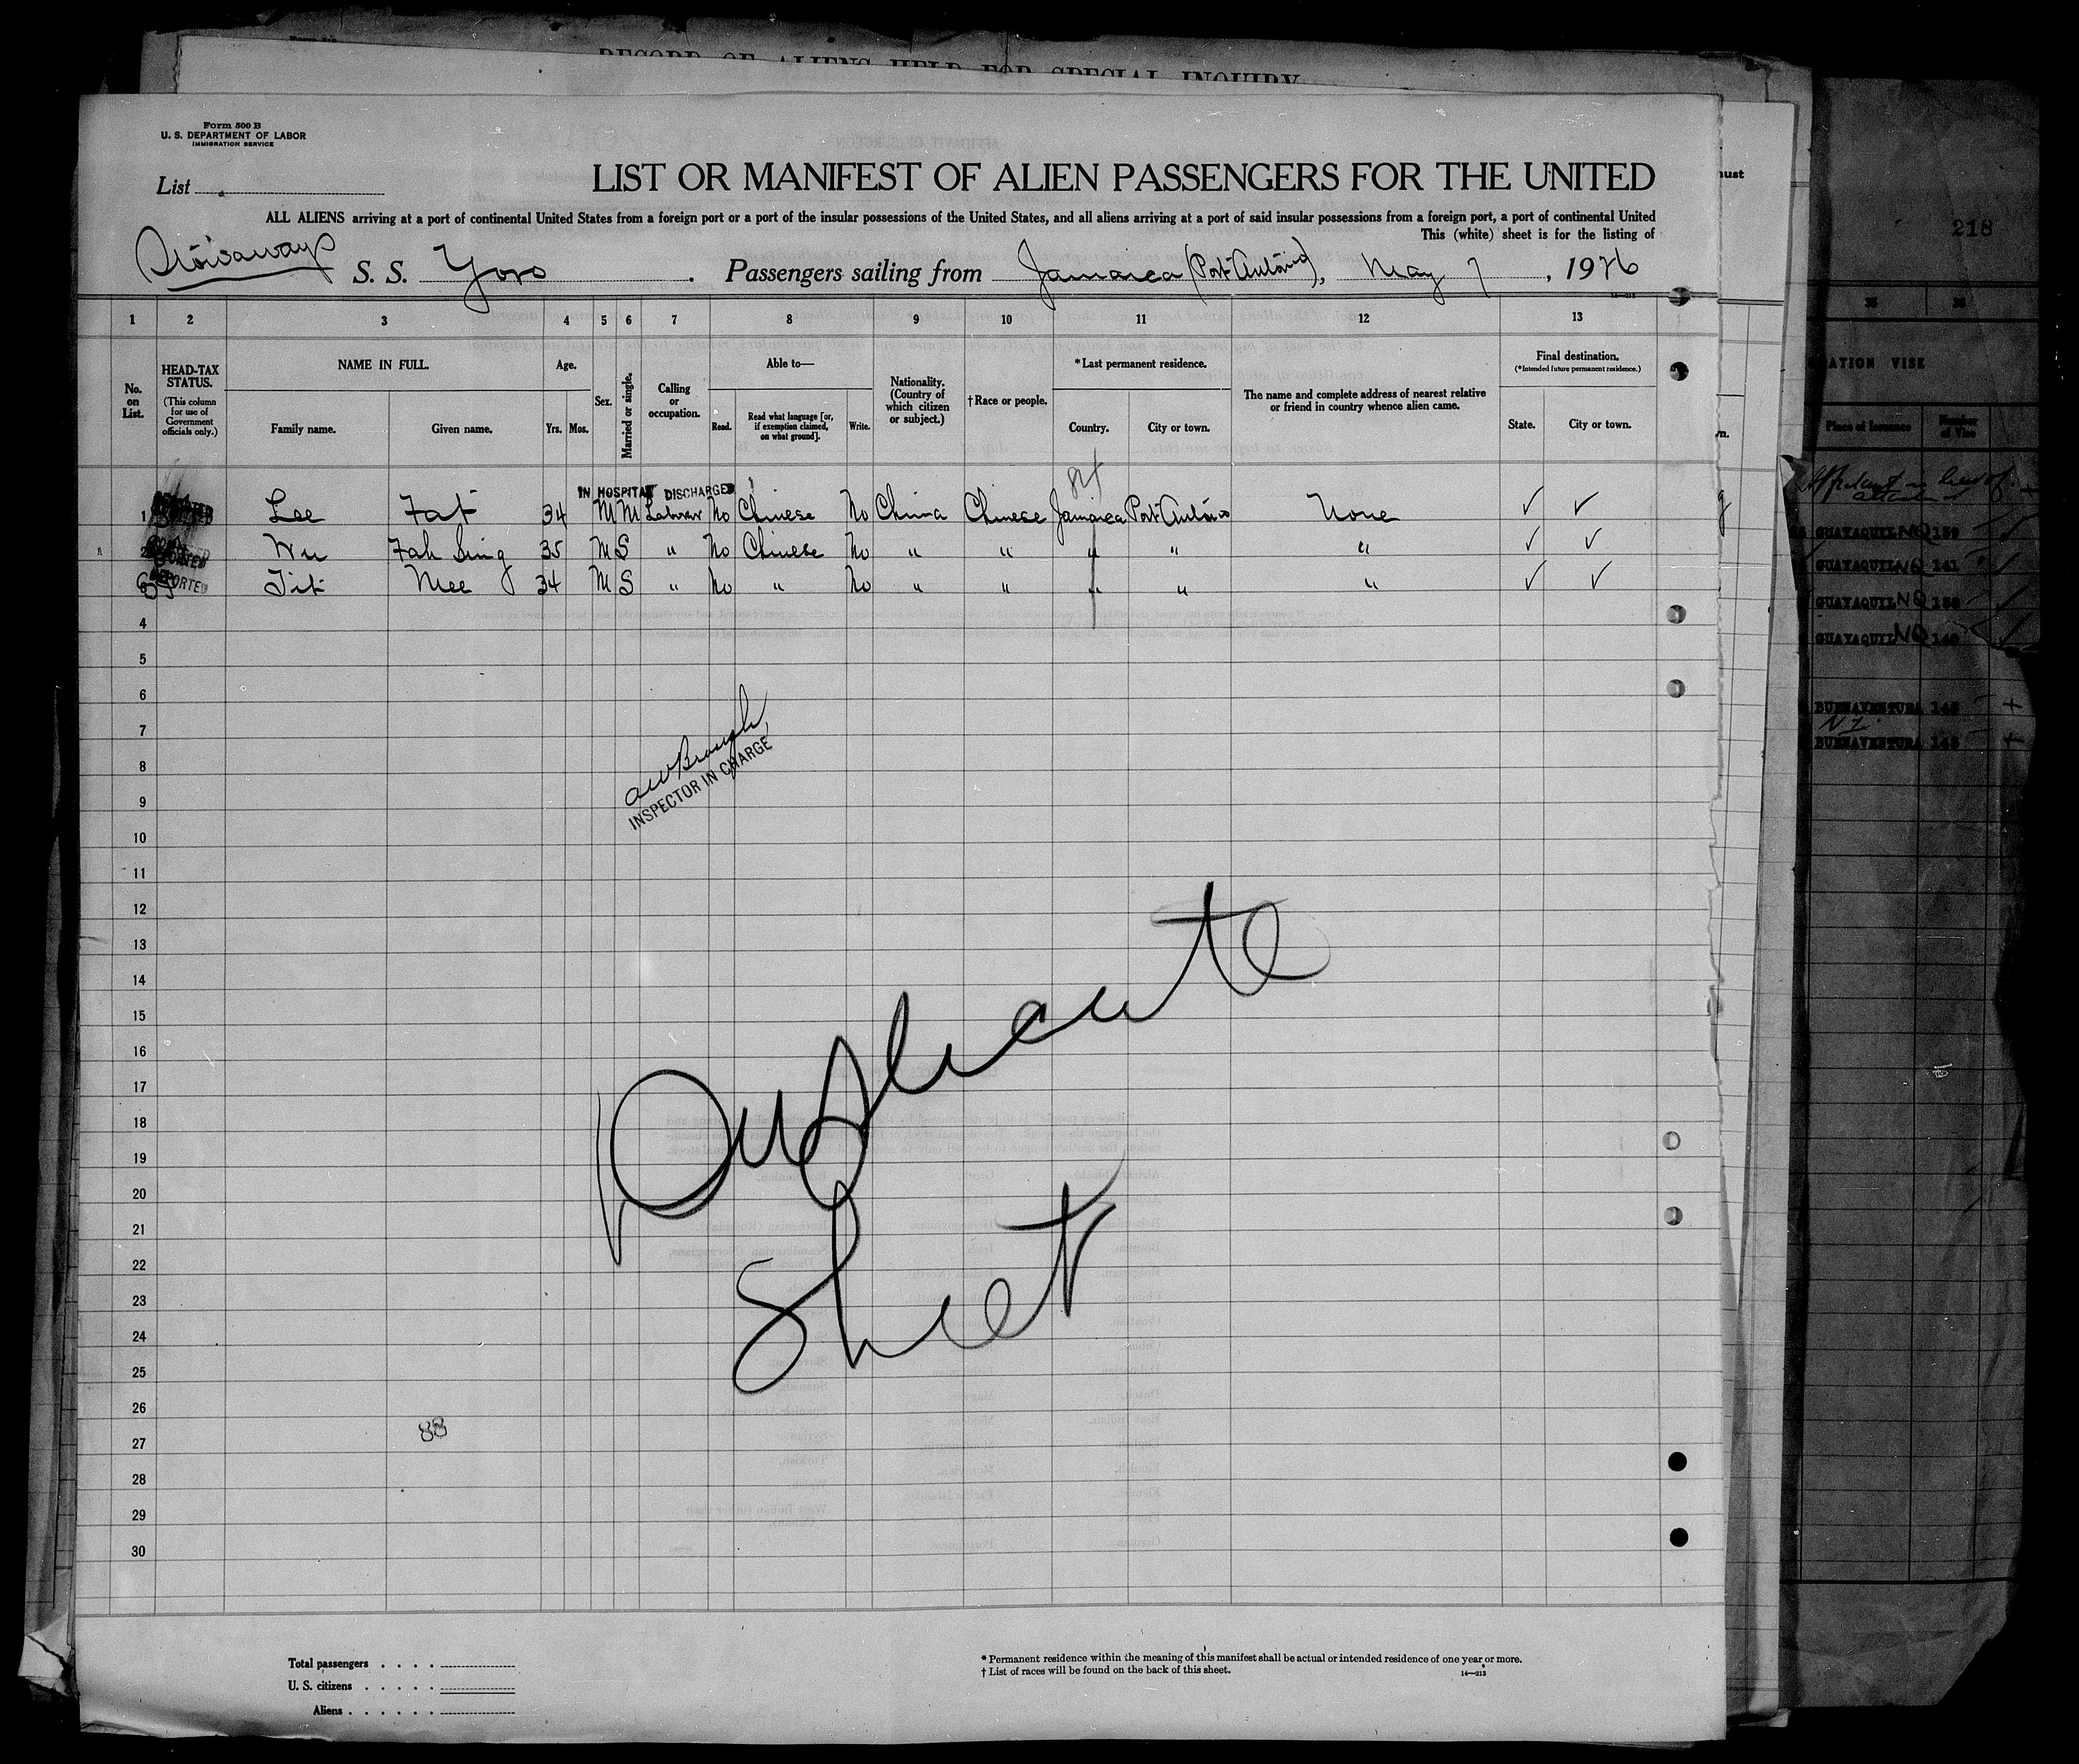 RECORD OF ALIENS HELD FOR SPECIAL INQUIRY
Form 500 B
U. S. DEPARTMENT OF LABOR
IMMIGRATION SERVICE
List
LIST OR MANIFEST OF ALIEN PASSENGERS FOR THE UNITED
ALL ALIENS arriving at a port of continental United States from a foreign port or a port of the insular possessions of the United States, and all aliens arriving at a port of said insular possessions from a foreign port, a port of continental United
This (white) sheet is for the listing of
Stowaways S. S. Yoro . Passengers sailing from Jamaica (Port Antonio), May 7, 1926
1 2 3 4 5 6 7 8 9 10 11 12 13
No. on List.
HEAD-TAX STATUS.
(This column for use of Government officials only.)
NAME IN FULL.
Family name. Given name.
Age.
Yrs. Mos.
Sex.
Married or single.
Calling or occupation.
Able to—
Read. Read what language [or, if exemption claimed, on what ground]. Write.
Nationality. (Country of which citizen or subject.)
†Race or people.
*Last permanent residence.
Country. City or town.
The name and complete address of nearest relative or friend in country whence alien came.
Final destination.
(*Intended future permanent residence.)
State. City or town.
IN HOSPITAL DISCHARGED
1 Lee Fat 34 M M Laborer No Chinese No China Chinese Jamaica Port Antonio None ✓ ✓
2 DEPORTED Wu Fah Sing 35 M S " No Chinese No " " " " " ✓ ✓
3 DEPORTED Tit Mee 34 M S " No " No " " " " " ✓ ✓
4
5
6
7
8
9
10
11
12
13
14
15
16
17
18
19
20
21
22
23
24
25
26
27
28
29
30
INSPECTOR IN CHARGE
Duplicate
Sheet
88
Total passengers . . . .
U. S. citizens . . . . .
Aliens . . . . . .
* Permanent residence within the meaning of this manifest shall be actual or intended residence of one year or more.
† List of races will be found on the back of this sheet.
14—213
218
35 36
VISE
Place of Issuance Number of Vise
GUAYAQUIL NQ 139
GUAYAQUIL NQ 141
GUAYAQUIL NQ
GUAYAQUIL NQ 140
BUENAVENTURA
BUENAVENTURA